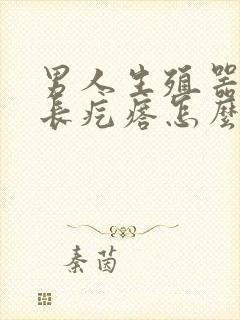 男人生殖器
長疙瘩怎麼
秦茵